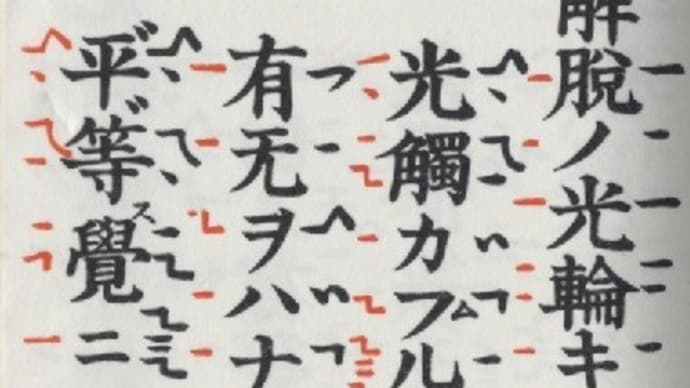 解脱ノ光輪キ
光觸カフル
有无ヲハナ
平等覺ニ
ス